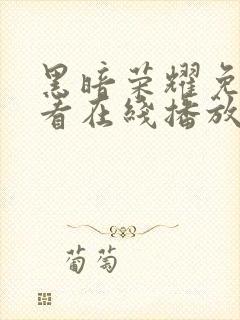 黑暗荣耀免
看在线播放
葡萄